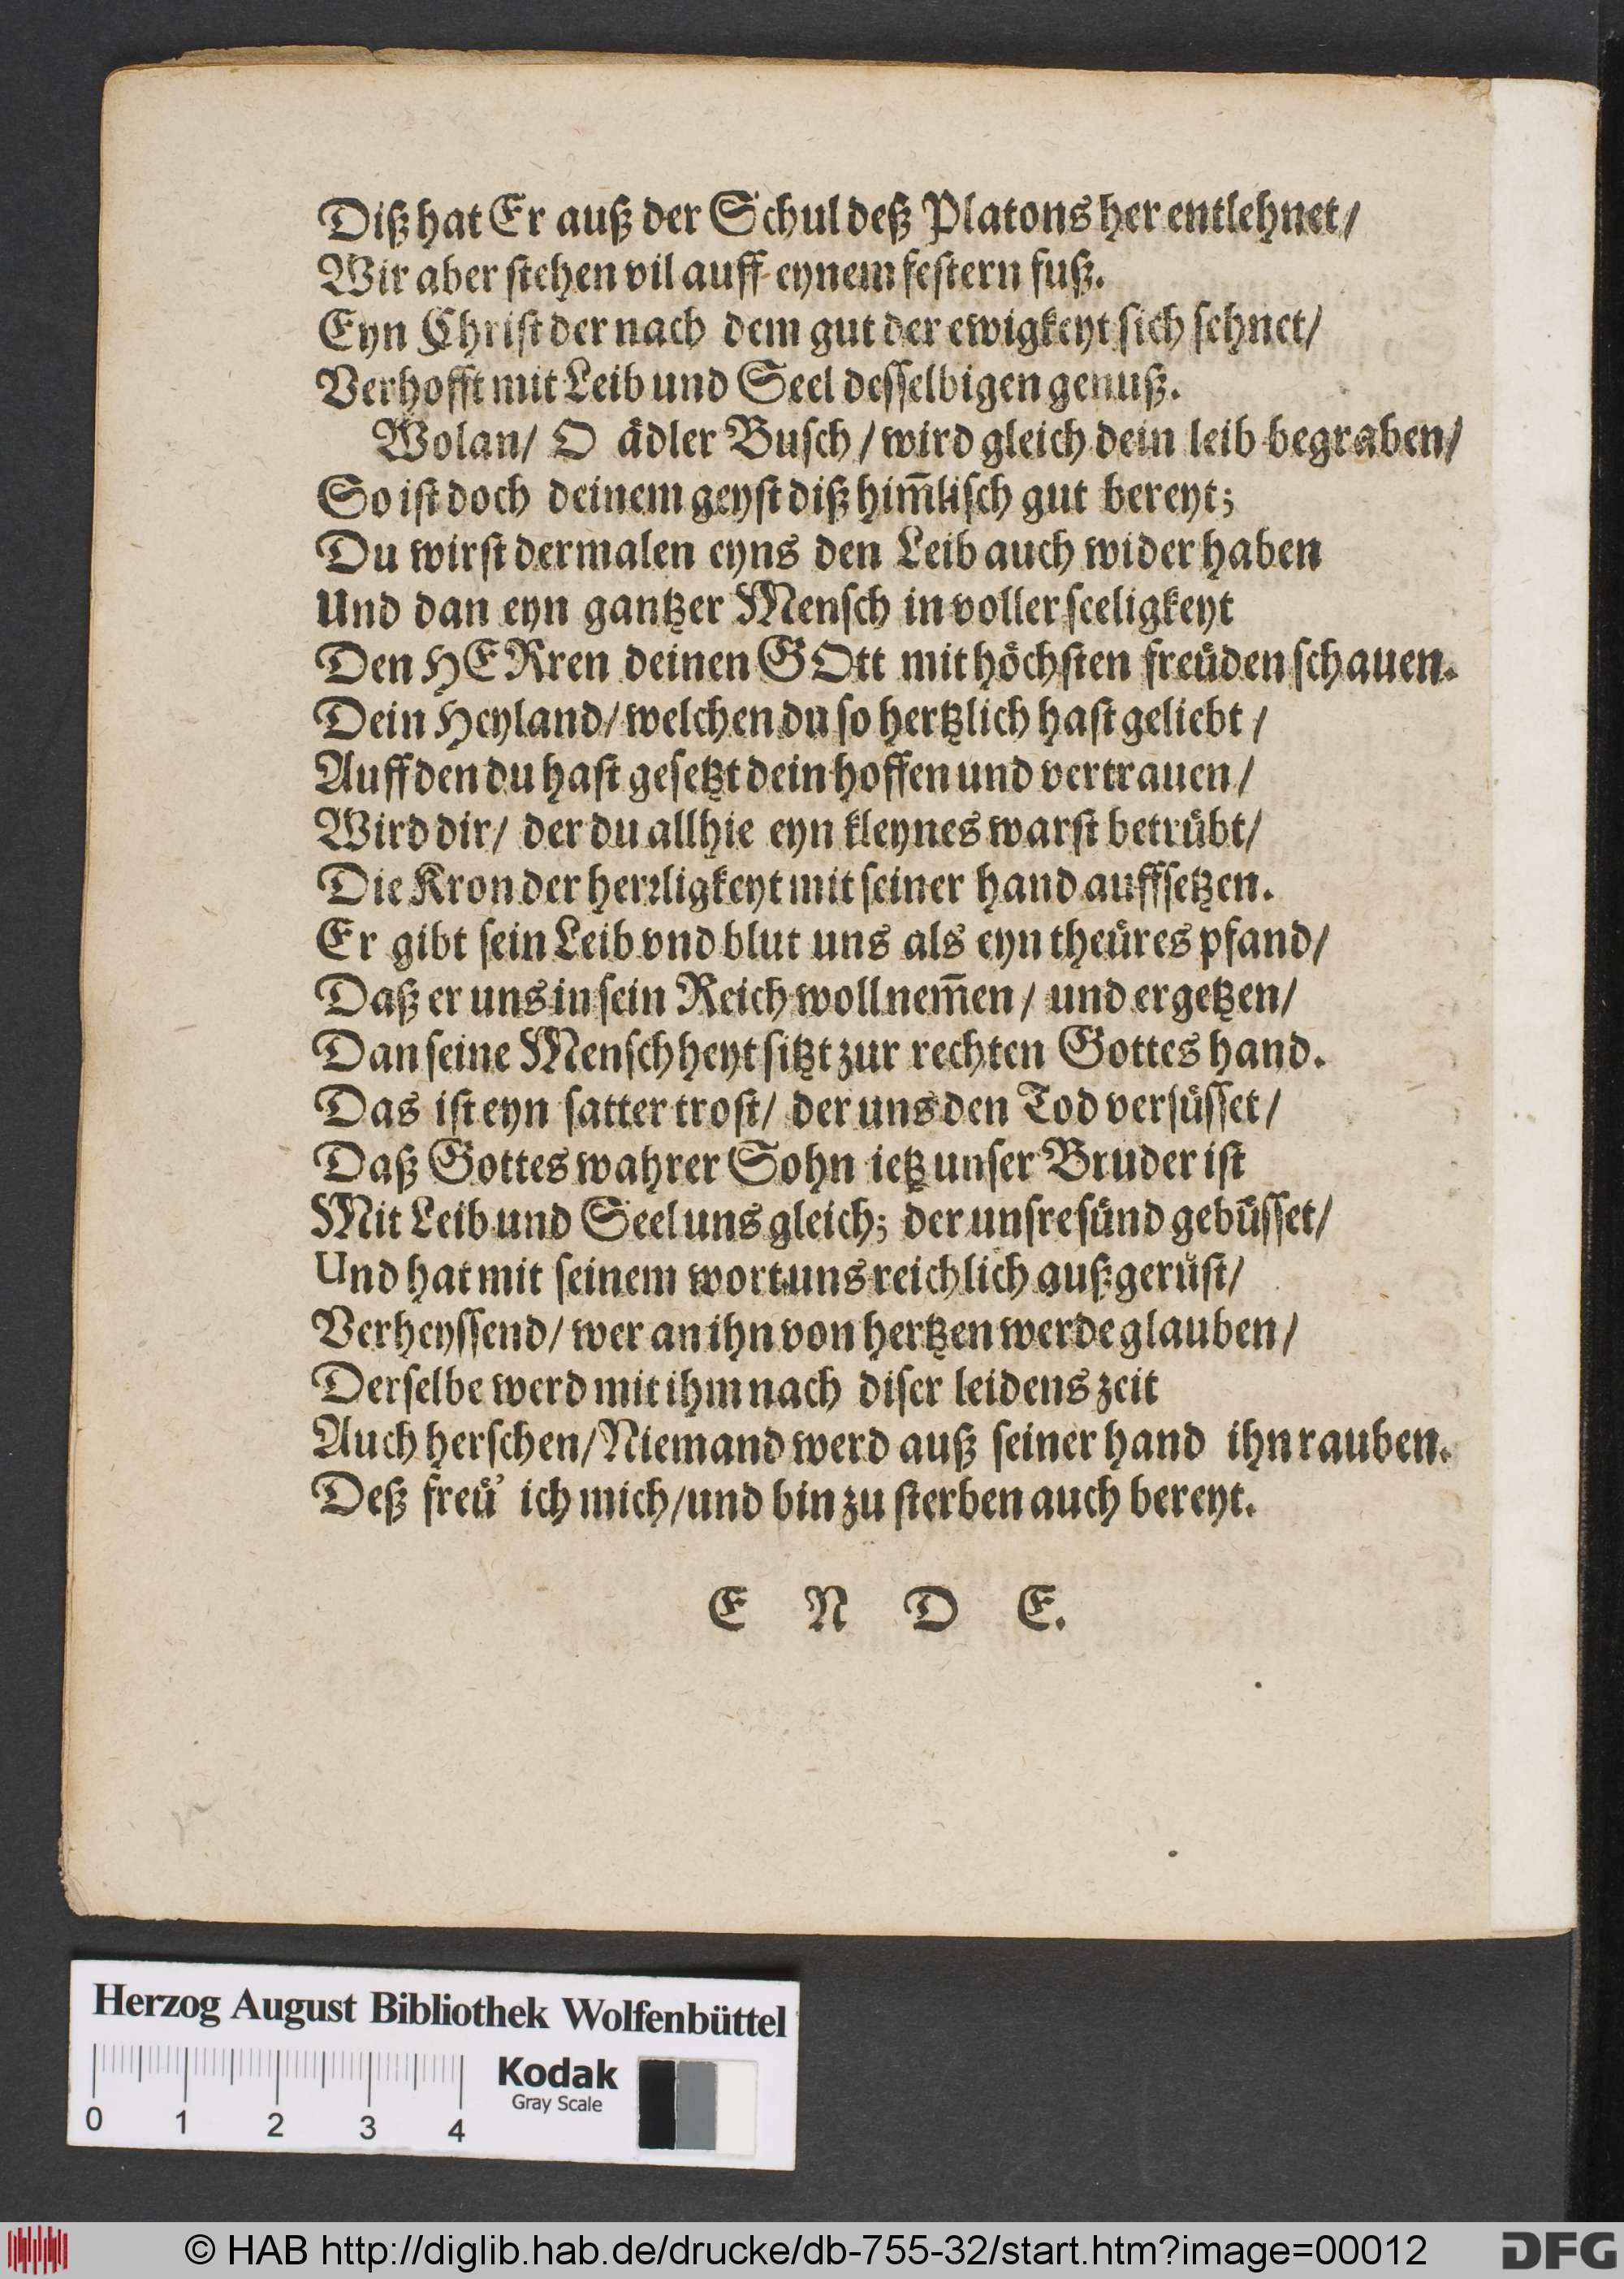 Diß hat Er auß der Schul deß Platons her entlehnet/
Wir aber stehen vil auff eynem festern fuß.
Eyn Christ der nach dem gut der ewigkeyt sich sehnet/
Verhofft mit Leib und Seel desselbigen genuß.
Wolan/ O aͤdler Busch/ wird gleich dein leib begraben/
So ist doch deinem geyst diß him̅lisch gut bereyt;
Du wirst dermalen eyns den Leib auch wider haben
Und dan eyn gantzer Mensch in voller seeligkeyt
Den HERren deinen GOtt mit hoͤchsten freuͤden schauen.
Dein Heyland/ welchen du so hertzlich hast geliebt/
Auff den du hast gesetzt dein hoffen und vertrauen/
Wird dir/ der du allhie eyn kleynes warst betruͤbt/
Die Kron der herꝛligkeyt mit seiner hand auffsetzen.
Er gibt sein Leib vnd blut uns als eyn theuͤres pfand/
Daß er uns in sein Reich woll nem̅en/ und ergetzen/
Dan seine Menschheyt sitzt zur rechten Gottes hand.
Das ist eyn satter trost/ der uns den Tod versuͤsset/
Daß Gottes wahrer Sohn ietz unser Bruder ist
Mit Leib und Seel uns gleich; der unsre suͤnd gebuͤsset/
Und hat mit seinem wort uns reichlich außgeruͤst/
Verheyssend/ wer an ihn von hertzen werde glauben/
Derselbe werd mit ihm nach diser leidens zeit
Auch herschen/ Niemand werd auß seiner hand ihn rauben.
Deß freuͤ' ich mich/ und bin zu sterben auch bereyt.
E N D E.
Herzog August Bibliothek Wolfenbüttel
Kodak
Gray Scale
0 1 2 3 4
© HAB http://diglib.hab.de/drucke/db-755-32/start.htm?image=00012
DFG